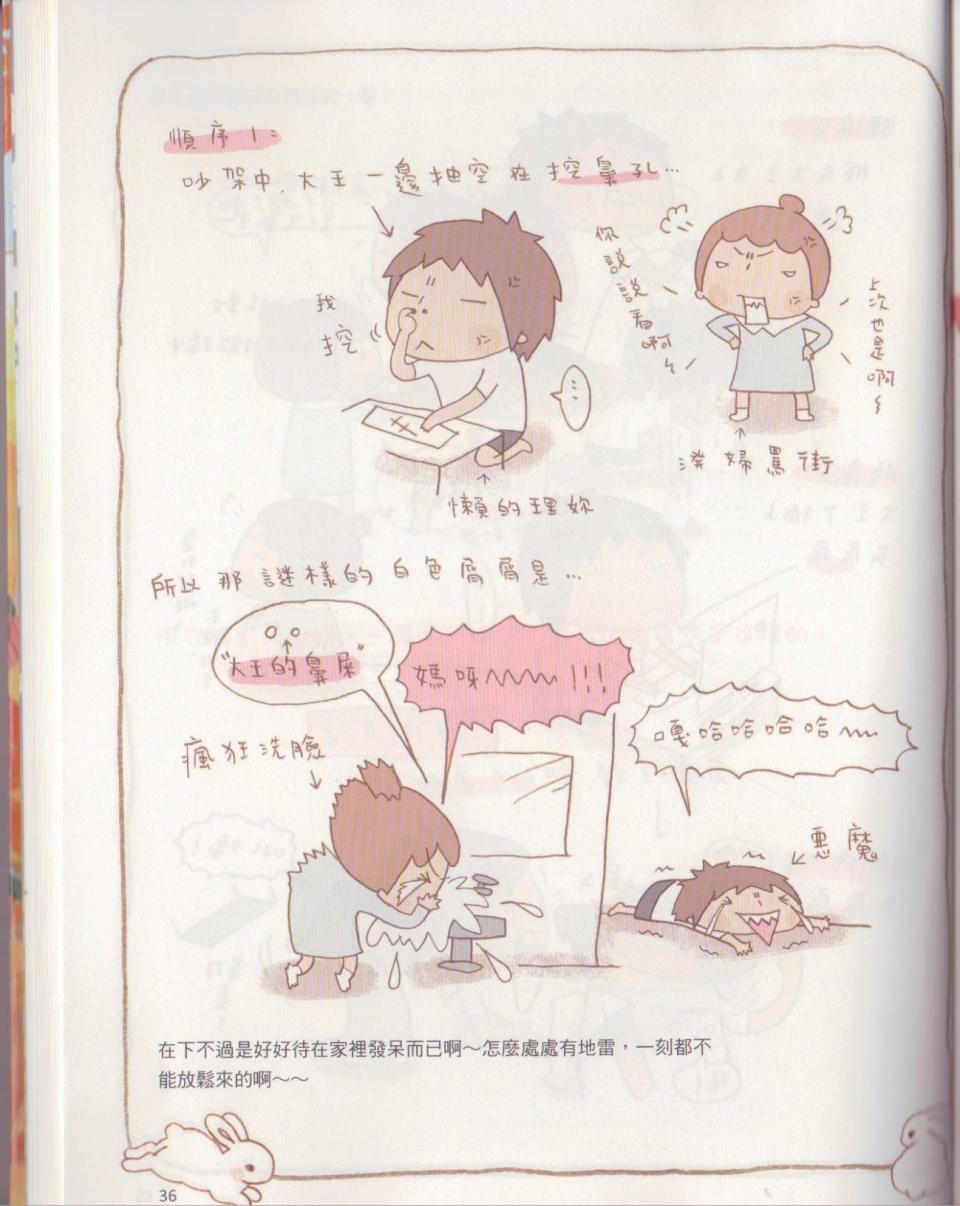 順序1:
吵架中,大王一邊抽空在挖鼻孔…
我挖
你說說看啊~
上次也是啊~
…
潑婦罵街
懶的理妳
所以那謎樣的白色屑屑是…
"大王的鼻屎"
媽呀~~~!!!
嘎哈哈哈哈~~
瘋狂洗臉
惡魔
在下不過是好好待在家裡發呆而已啊～怎麼處處有地雷，一刻都不
能放鬆來的啊～～
36